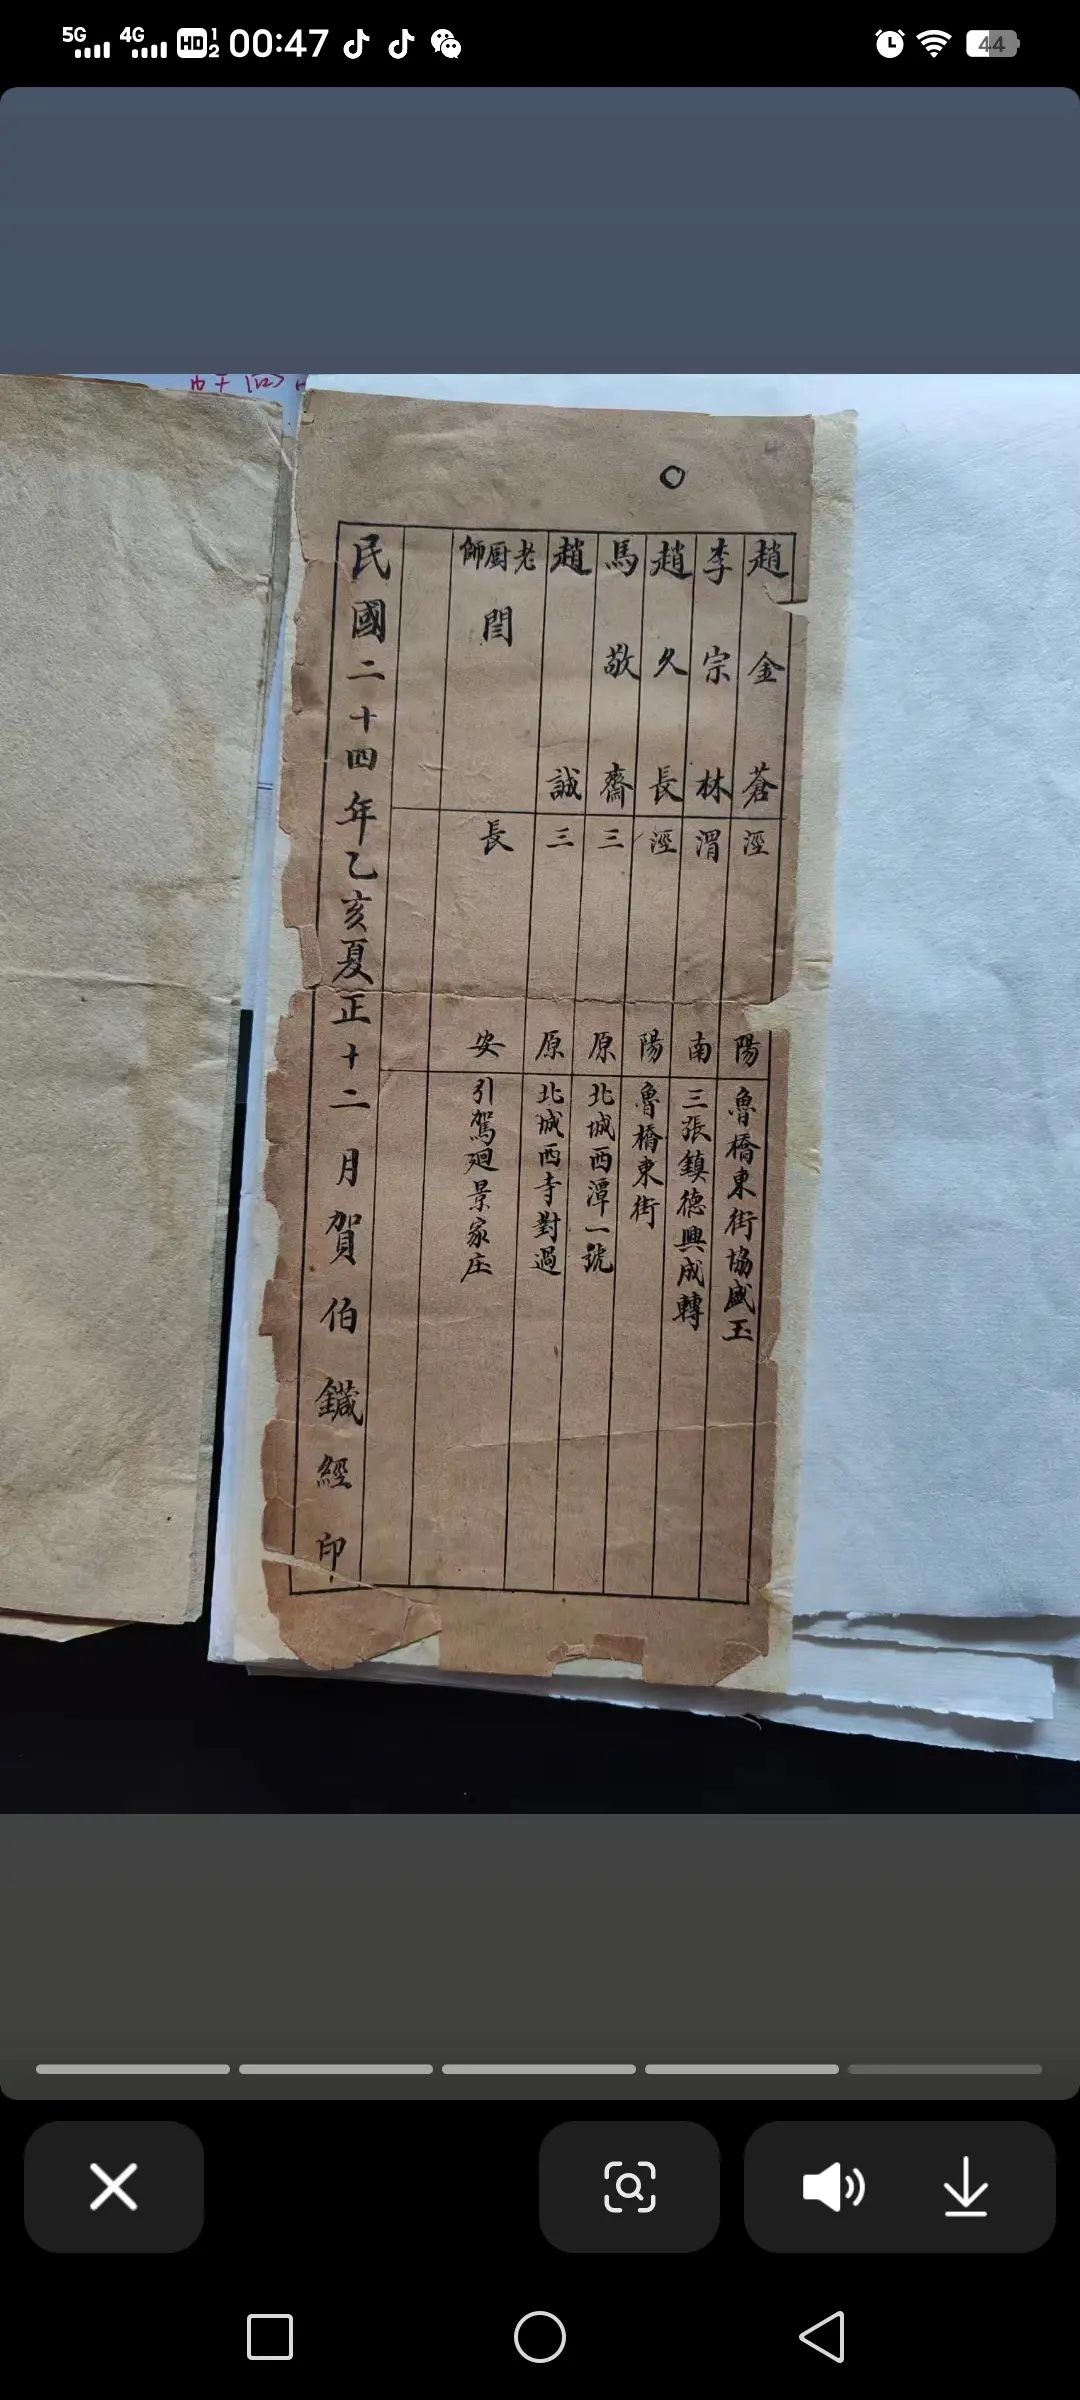 5G 4G HD 1 2 00:47 44
趙金蒼 涇陽 魯橋東街協盛玉
李宗林 渭南 三張鎮德興成轉
趙久長 涇陽 魯橋東街
馬敬齋 三原 北城西潭一號
趙誠 三原 北城西寺對過
老厨師閆 長安 引駕廻景家庄
民國二十四年乙亥夏正十二月賀伯鍼經印